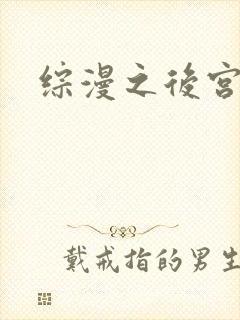 综漫之後宫
戴戒指的男生